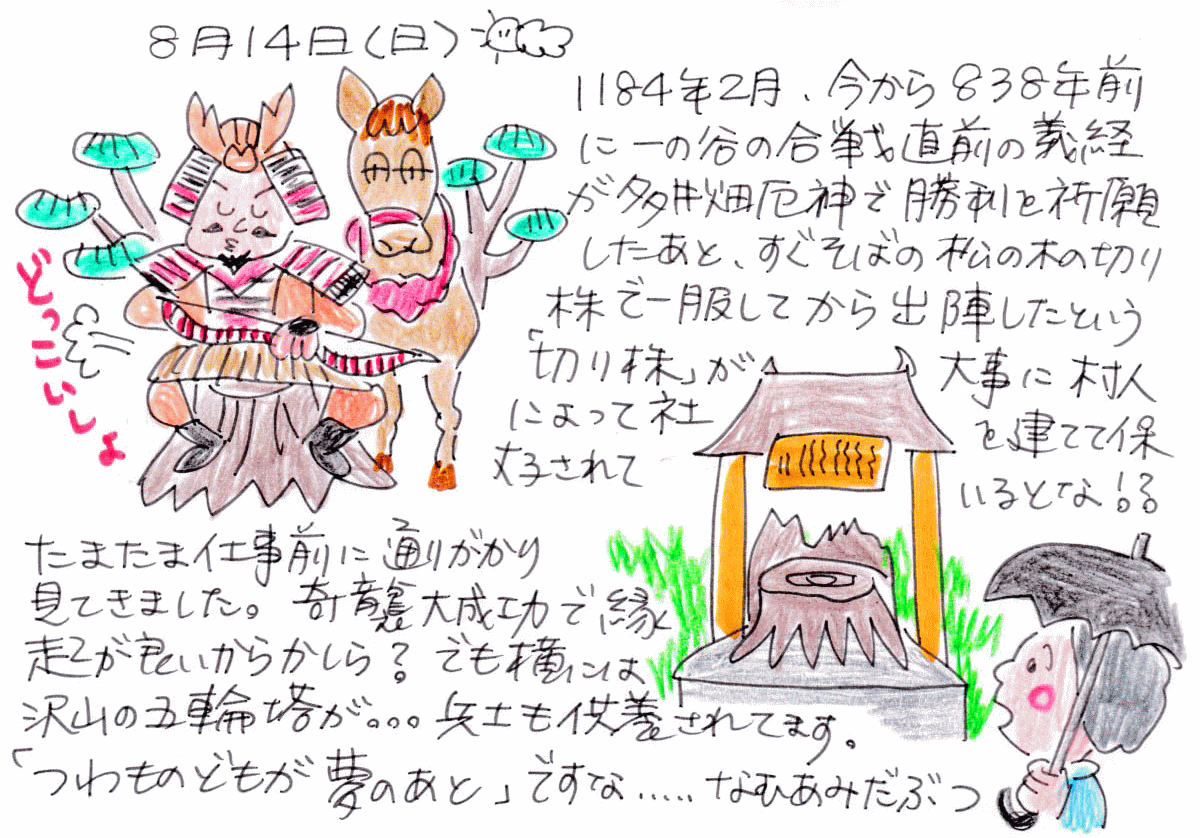 8月14日(日)
1184年2月、今から838年前
に一の谷の合戦直前の義経
が多井畑厄神で勝利を祈願
したあと、すぐそばの松の木の切り
株で一服してから出陣したという
「切り株」が大事に村人
によって社を建てて保
存されているとな!?
どっこいしょ
たまたま仕事前に通りがかり
見てきました。奇襲大成功で縁
起が良いからかしら?でも横には
沢山の五輪塔が。。。兵士も供養されてます。
「つわものどもが夢のあと」ですな.....なむあみだぶつ